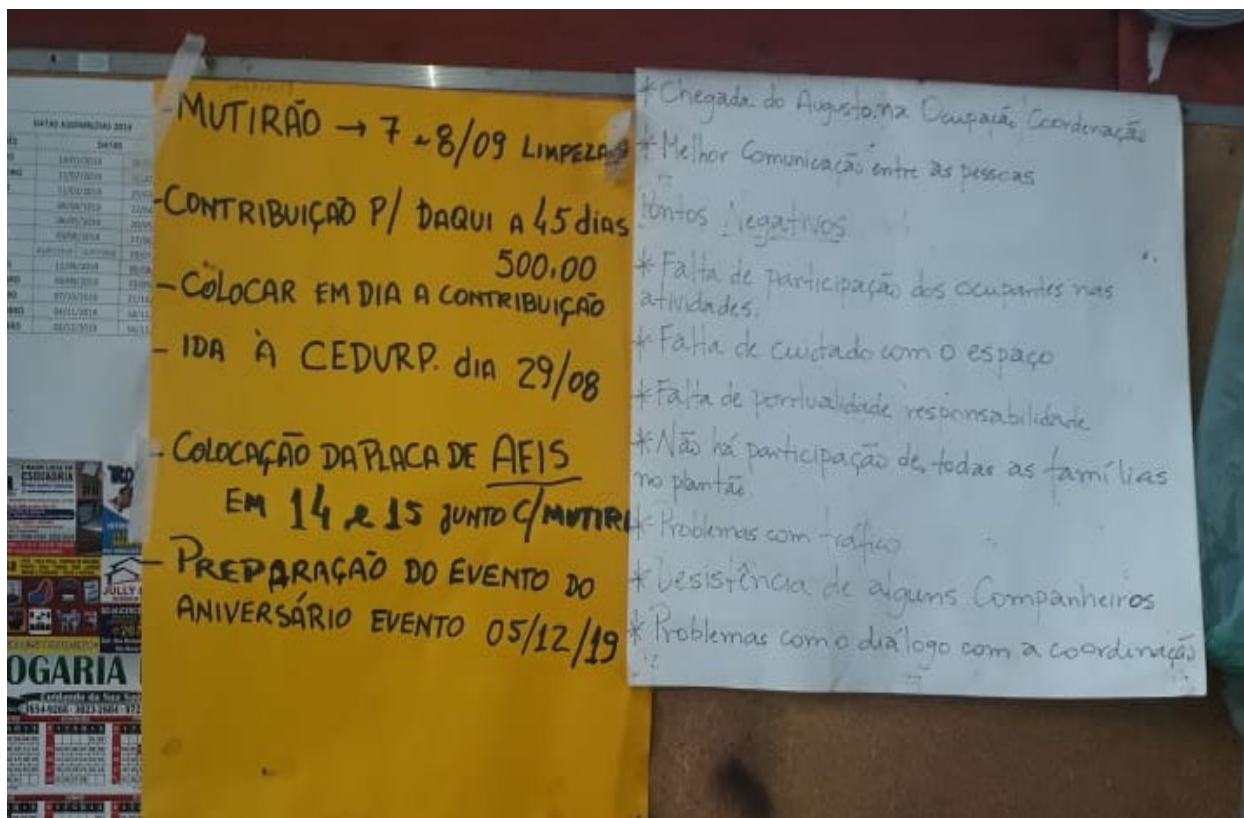 DATAS ASSEMBLEIAS 2019
DATAS
- MUTIRÃO → 7 e 8/09 LIMPEZA
- CONTRIBUIÇÃO P/ DAQUI A 45 dias
500,00
- COLOCAR EM DIA A CONTRIBUIÇÃO
- IDA À CEDURP. dia 29/08
- COLOCAÇÃO DA PLACA DE AEIS
EM 14 e 15 JUNTO C/ MUTIRÃ
- PREPARAÇÃO DO EVENTO DO
ANIVERSÁRIO EVENTO 05/12/19
* Chegada do Augusto, na Ocupação Coordenação
* Melhor Comunicação entre as pessoas
Pontos Negativos
* Falta de participação dos ocupantes nas
atividades.
* Falta de cuidado com o espaço
* Falta de pontualidade responsabilidade
* Não há participação de todas as famílias
no plantão.
* Problemas com tráfico
* Desistência de alguns Companheiros
* Problemas com o diálogo com a coordenação
ESQUADRIA
JULLY
OGARIA
Cuidando da Sua